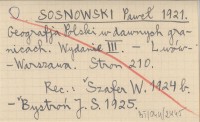 SOSNOWSKI Paweł 1921.
Geografja Polski w dawnych gra-
nicach. Wydanie III. - Lwów-
-Warszawa. Stron 210.
Rec.: Szafer W. 1924 b.
-Bystroń J. S. 1925.